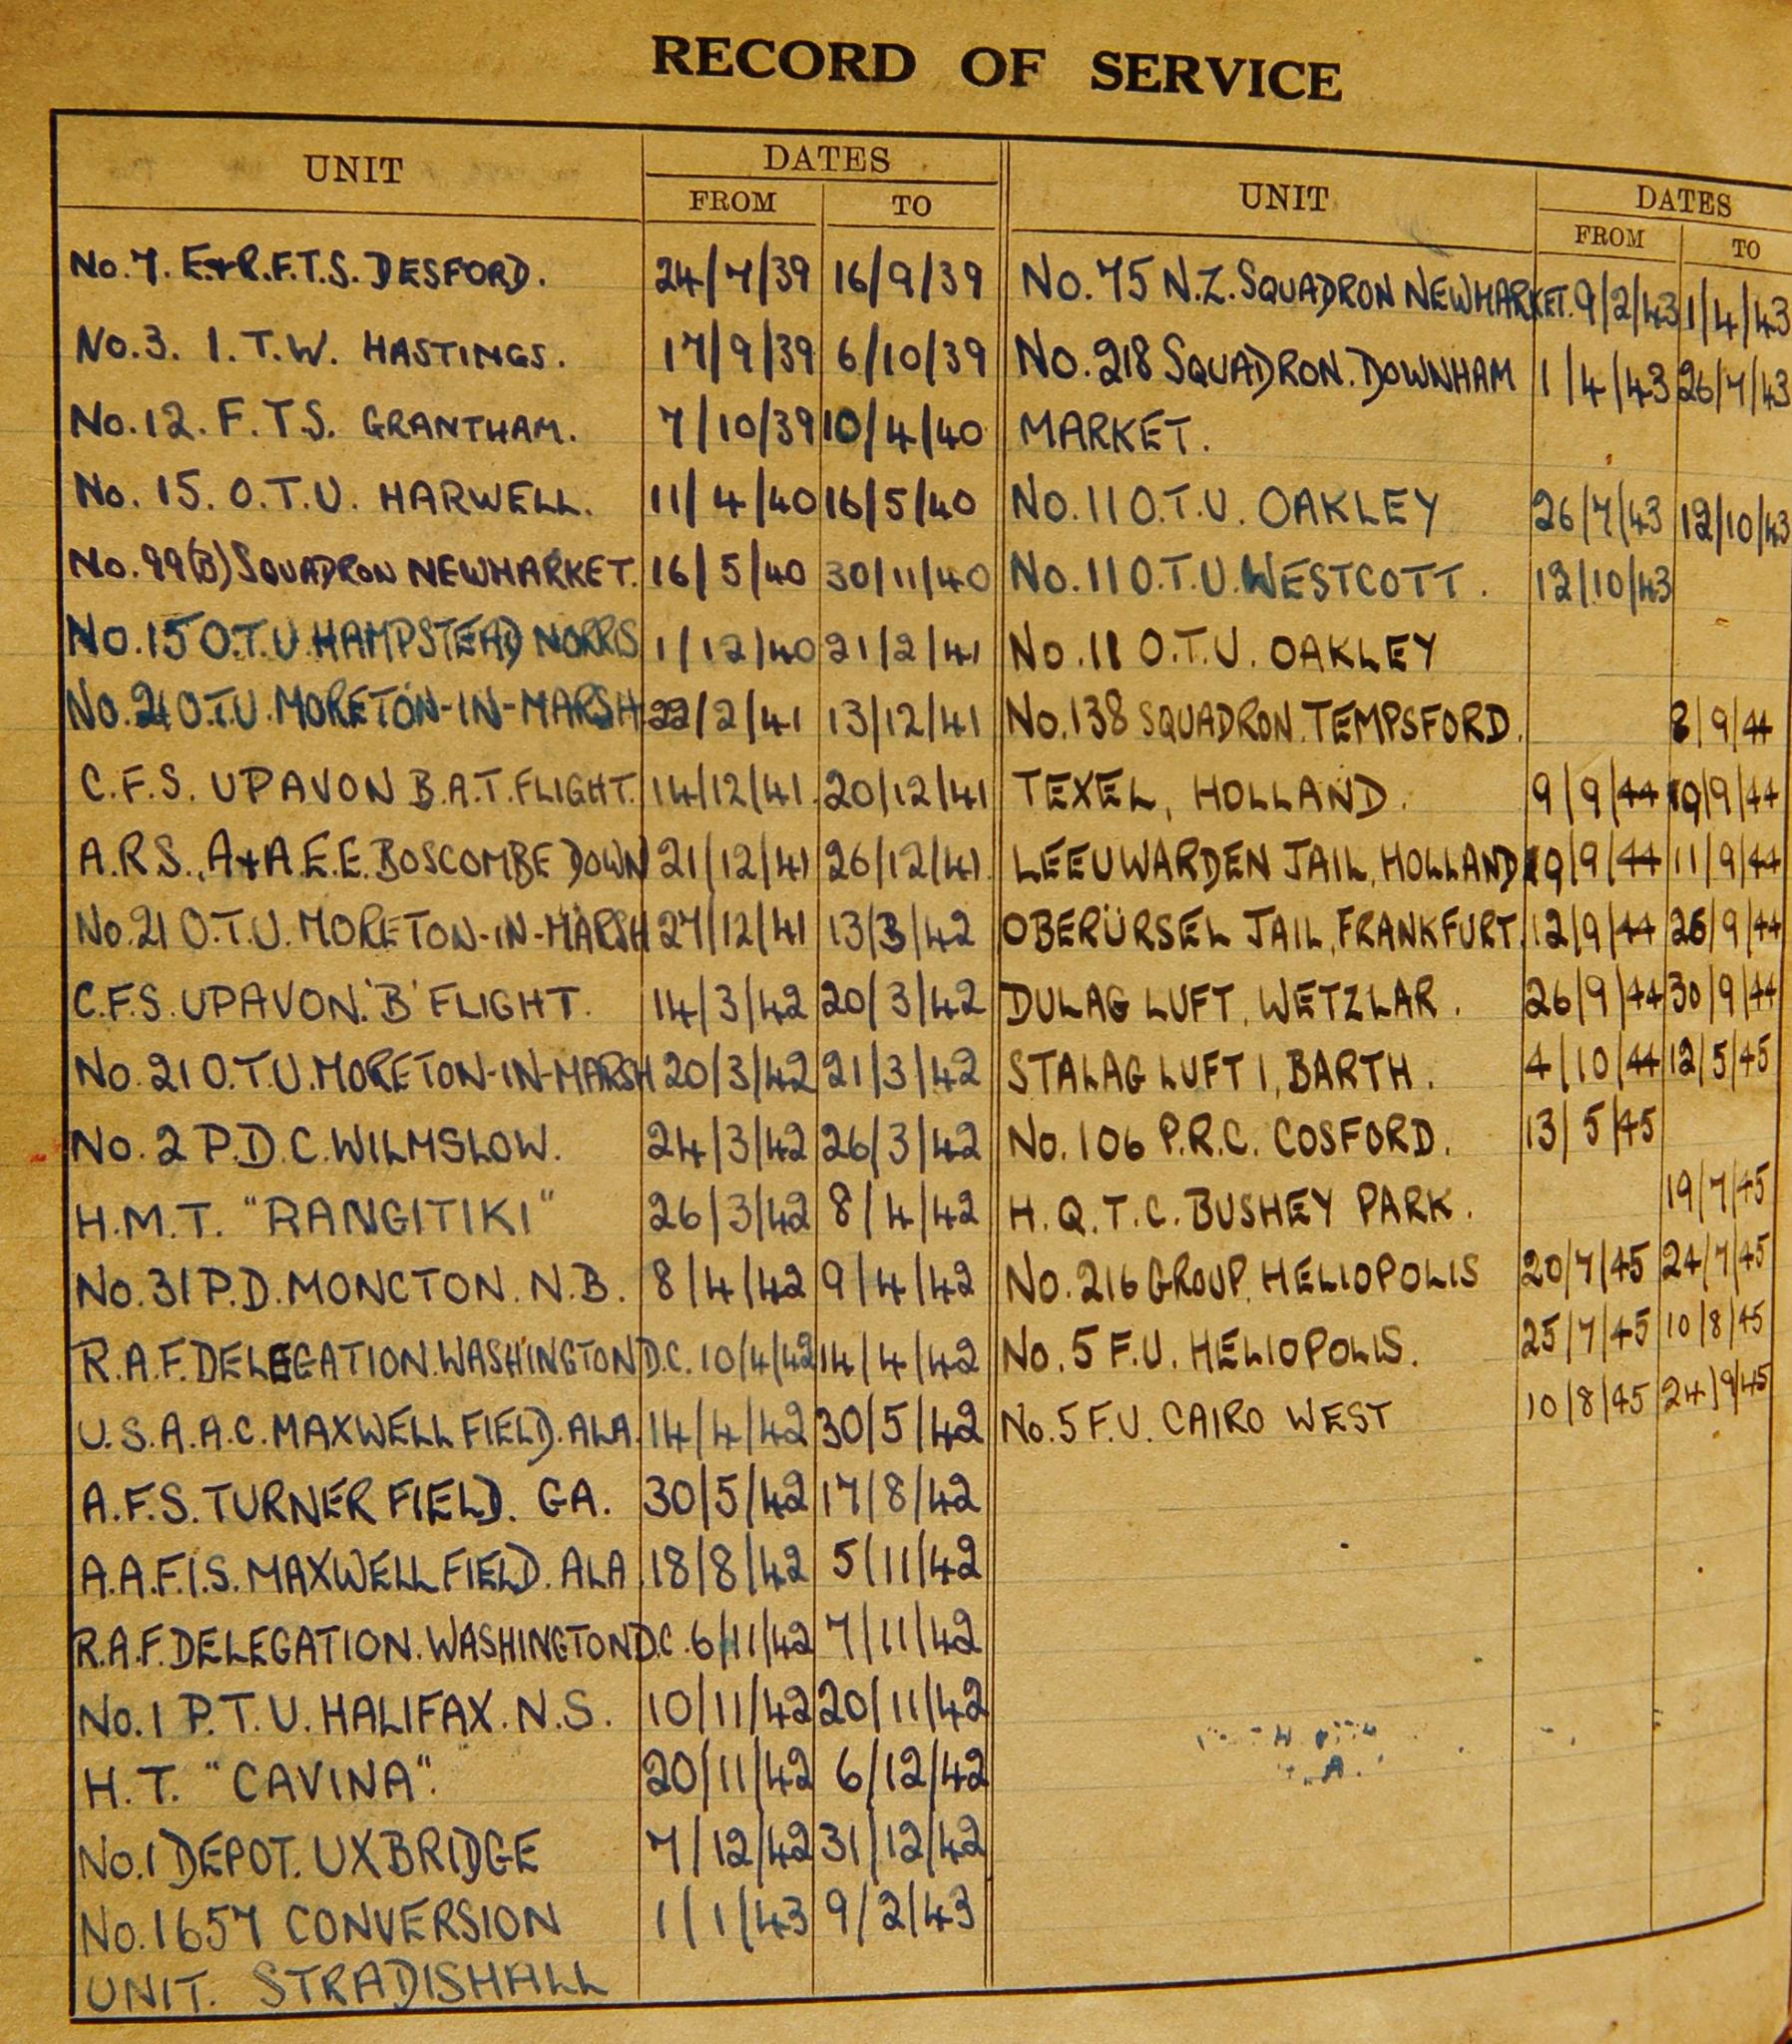 RECORD OF SERVICE
UNIT DATES
FROM TO
No. 7. E.&R.F.T.S. DESFORD. 24/7/39 16/9/39
No. 3. I.T.W. HASTINGS. 17/9/39 6/10/39
No. 12. F.T.S. GRANTHAM. 7/10/39 10/4/40
No. 15. O.T.U. HARWELL. 11/4/40 16/5/40
No. 99(B) SQUADRON NEWMARKET. 16/5/40 30/11/40
No. 15 O.T.U. HAMPSTEAD NORRIS 1/12/40 21/2/41
No. 21 O.T.U. MORETON-IN-MARSH 22/2/41 13/12/41
C.F.S. UPAVON B.A.T. FLIGHT. 14/12/41 20/12/41
A.R.S., A&A.E.E. BOSCOMBE DOWN 21/12/41 26/12/41
No. 21 O.T.U. MORETON-IN-MARSH 27/12/41 13/3/42
C.F.S. UPAVON. 'B' FLIGHT. 14/3/42 20/3/42
No. 21 O.T.U. MORETON-IN-MARSH 20/3/42 21/3/42
No. 2 P.D.C. WILMSLOW. 24/3/42 26/3/42
H.M.T. "RANGITIKI" 26/3/42 8/4/42
No. 31 P.D. MONCTON. N.B. 8/4/42 9/4/42
R.A.F. DELEGATION. WASHINGTON D.C. 10/4/42 14/4/42
U.S.A.A.C. MAXWELL FIELD. ALA. 14/4/42 30/5/42
A.F.S. TURNER FIELD. GA. 30/5/42 17/8/42
A.A.F.I.S. MAXWELL FIELD. ALA. 18/8/42 5/11/42
R.A.F. DELEGATION. WASHINGTON D.C. 6/11/42 7/11/42
No. 1 P.T.U. HALIFAX. N.S. 10/11/42 20/11/42
H.T. "CAVINA". 20/11/42 6/12/42
No. 1 DEPOT. UXBRIDGE 7/12/42 31/12/42
No. 1657 CONVERSION 1/1/43 9/2/43
UNIT. STRADISHALL
UNIT DATES
FROM TO
No. 75 N.Z. SQUADRON NEWMARKET. 9/2/43 1/4/43
No. 218 SQUADRON. DOWNHAM 1/4/43 26/7/43
MARKET.
No. 11 O.T.U. OAKLEY 26/7/43 12/10/43
No. 11 O.T.U. WESTCOTT. 12/10/43
No. 11 O.T.U. OAKLEY
No. 138 SQUADRON. TEMPSFORD. 8/9/44
TEXEL, HOLLAND. 9/9/44 9/9/44
LEEUWARDEN JAIL, HOLLAND 9/9/44 11/9/44
OBERÜRSEL JAIL, FRANKFURT. 12/9/44 26/9/44
DULAG LUFT, WETZLAR. 26/9/44 30/9/44
STALAG LUFT 1, BARTH. 4/10/44 12/5/45
No. 106 P.R.C. COSFORD. 13/5/45
H.Q.T.C. BUSHEY PARK. 19/7/45
No. 216 GROUP, HELIOPOLIS 20/7/45 24/7/45
No. 5 F.U. HELIOPOLIS. 25/7/45 10/8/45
No. 5 F.U. CAIRO WEST 10/8/45 24/9/45